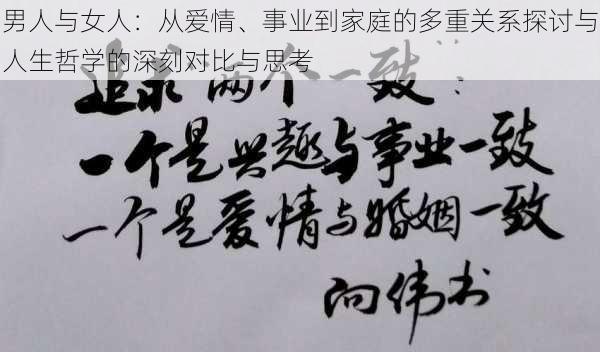 男人与女人：从爱情、事业到家庭的多重关系探讨与
人生哲学的深刻对比与思考
追求两个一致：
一个是兴趣与事业一致
一个是爱情与婚姻一致
向伟书